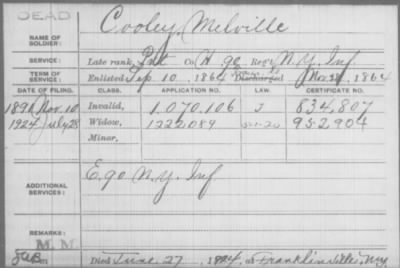 DEAD
NAME OF SOLDIER: Cooley, Melville
SERVICE: Late rank, Pvt Co. H. 90 Reg't N.Y. Inf.
TERM OF SERVICE: Enlisted Sep. 10, 1864 Discharged Nov. 1864
DATE OF FILING. CLASS. APPLICATION NO. LAW. CERTIFICATE NO.
1891 Nov. 10 Invalid, 1,070,106 J 834,807
1924 July 28 Widow, 1222089 952904
Minor,
ADDITIONAL SERVICES: E. 90 N.Y. Inf
REMARKS:
M. M.
Died June 27, 1924, at Franklinville, N.Y.